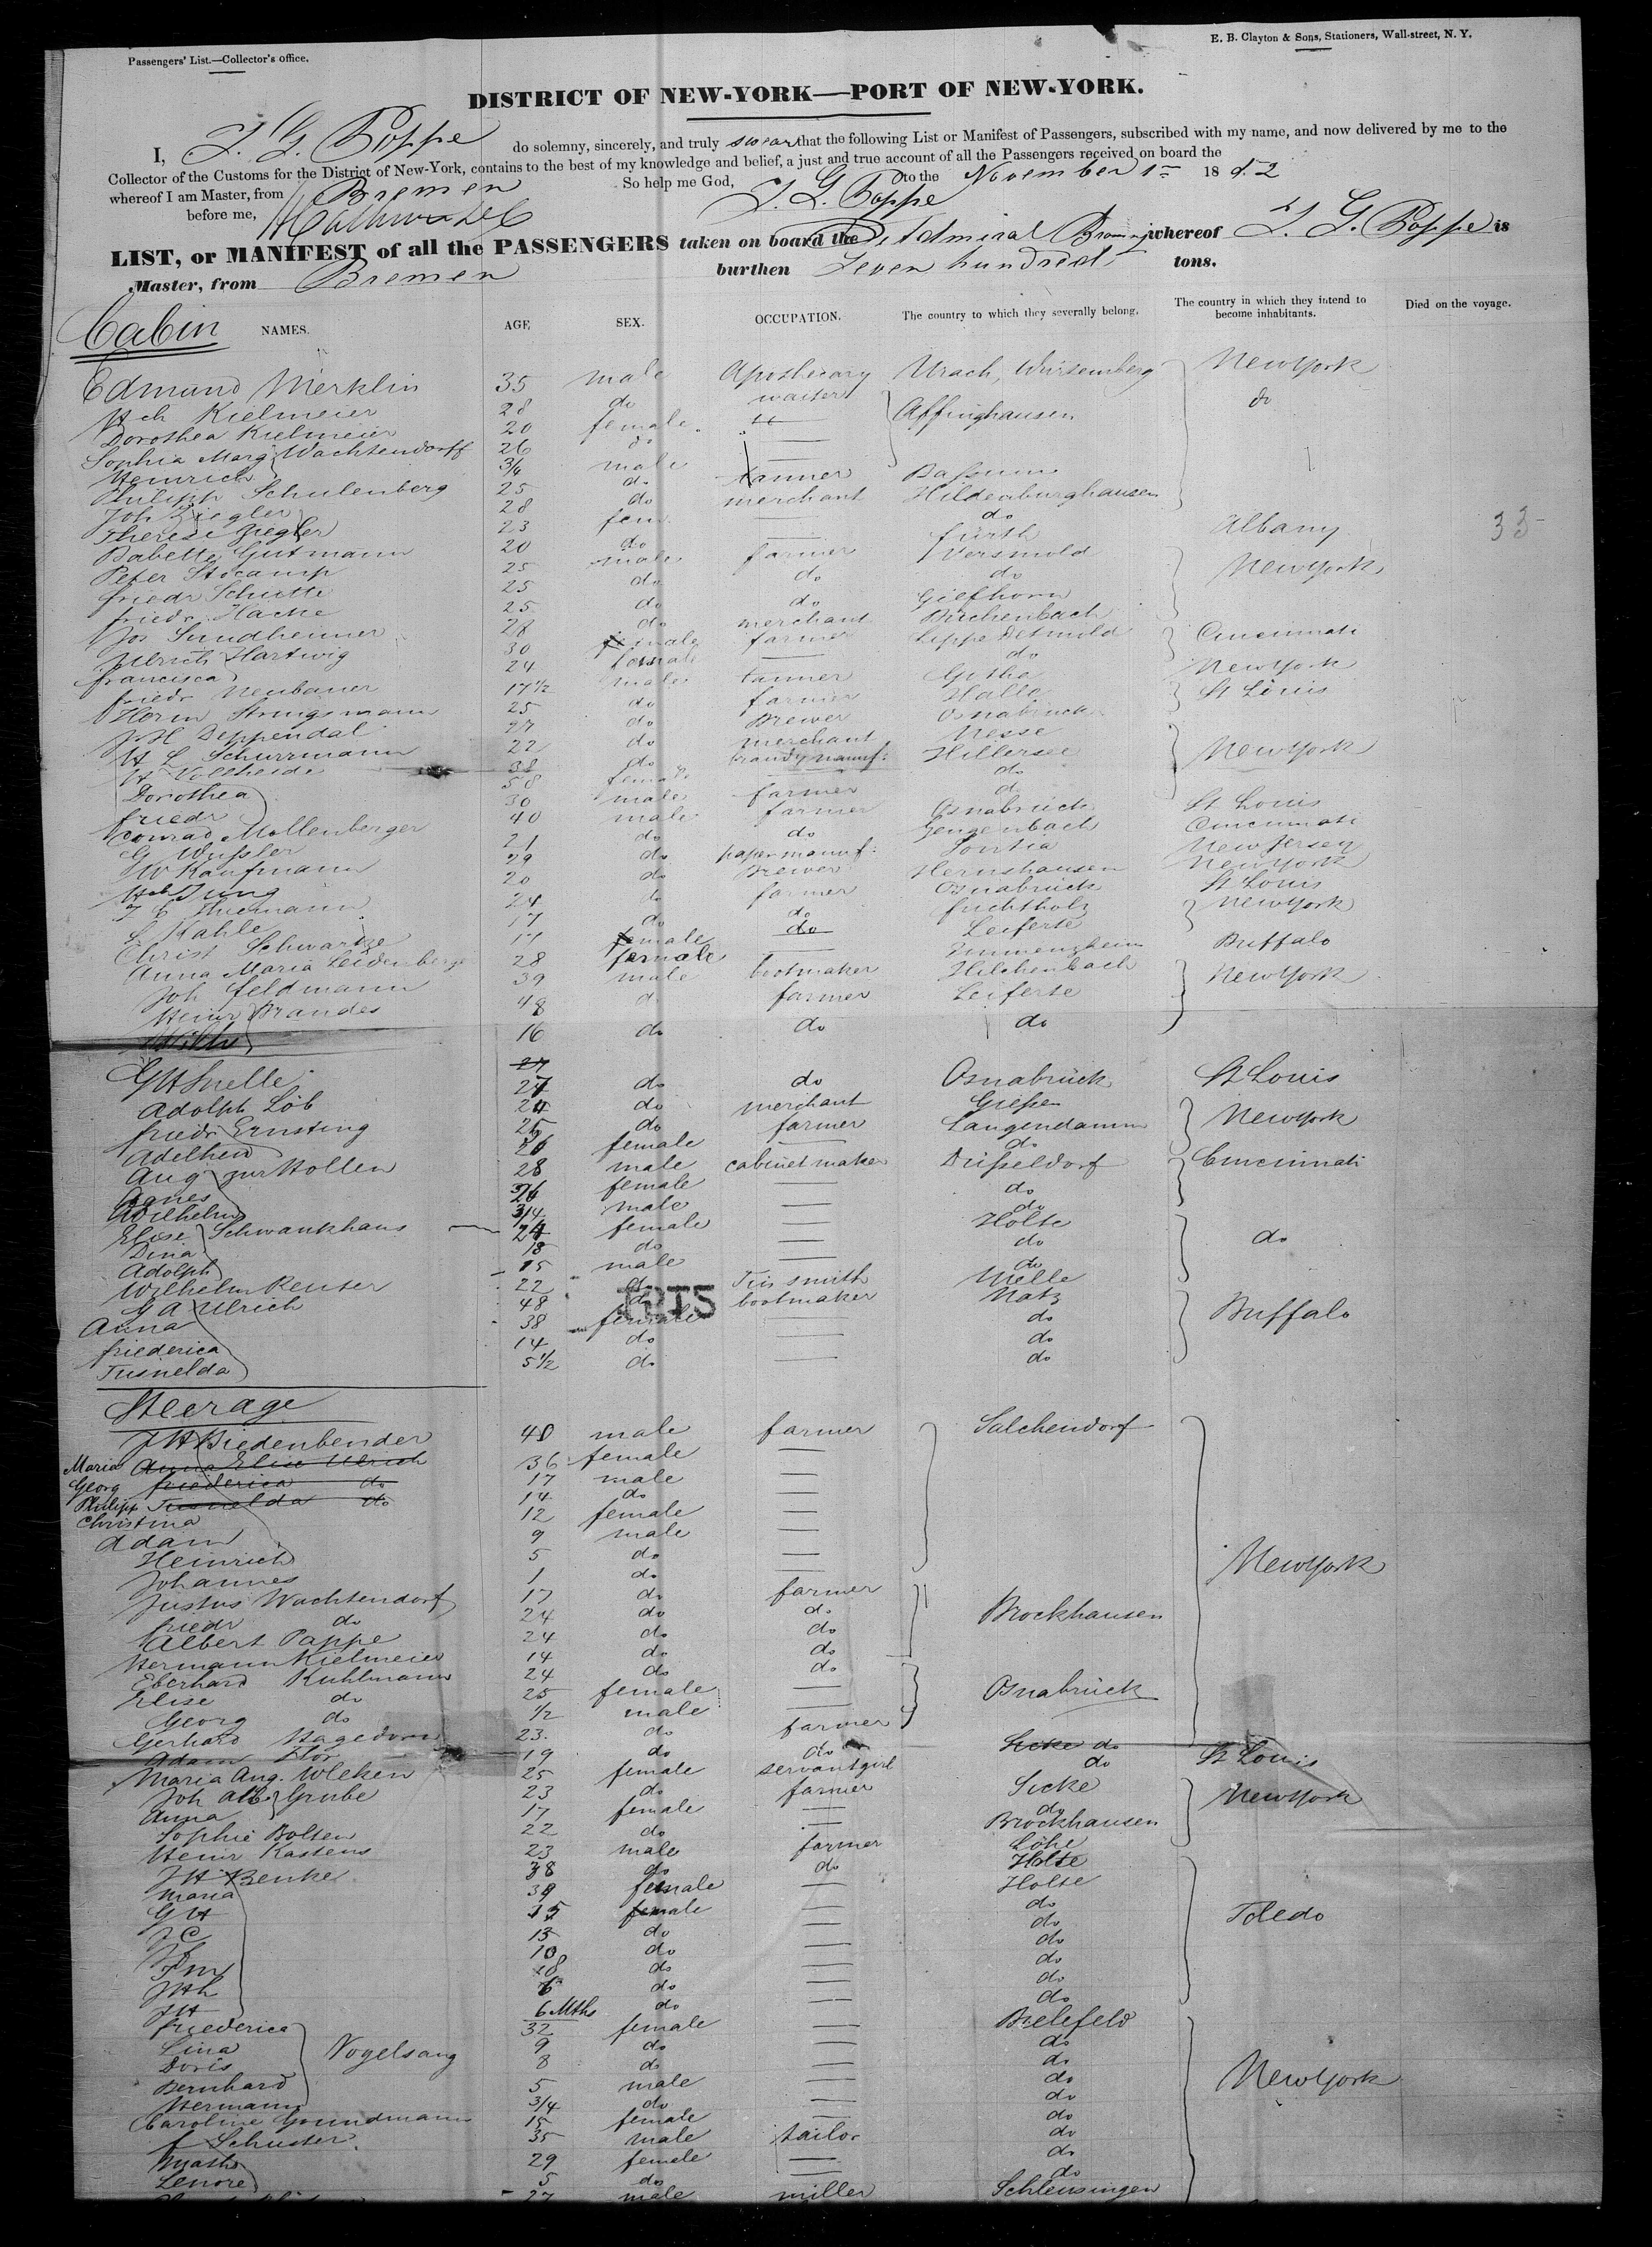 Passengers' List.—Collector's office.
E. B. Clayton & Sons, Stationers, Wall-street, N. Y.
DISTRICT OF NEW-YORK—PORT OF NEW-YORK.
I, J. G. Poppe do solemny, sincerely, and truly swear that the following List or Manifest of Passengers, subscribed with my name, and now delivered by me to the
Collector of the Customs for the District of New-York, contains to the best of my knowledge and belief, a just and true account of all the Passengers received on board the
whereof I am Master, from Bremen So help me God, to the November 1st 18
before me, J. G. Poppe
LIST, or MANIFEST of all the PASSENGERS taken on board the Admiral whereof J. G. Poppe is
Master, from Bremen burthen Seven hundred tons.
Cabin NAMES. AGE SEX. OCCUPATION. The country to which they severally belong. The country in which they intend to become inhabitants. Died on the voyage.
Edmund Merklin 35 male Apothecary Urach, Würtemberg New York
Hch Kielmeier 28 do waiter Affinghausen do
Dorothea Kielmeier 20 female
Sophia Marg Wachtendorff 26 do
Heinrich 3/4 male
Philipp Schulenberg 25 do tanner Bassum
Joh Ziegler 28 do merchant Hildenburghausen
Therese Ziegler 23 fem do
Babette Gutmann 20 do fürth Albany
33
Peter Stocamp 25 male farmer Versmold New York
friedr Schutte 25 do do do
friedr Hacke 25 do do Giefhorn
Jos Sundheimer 28 do merchant Birchenbach
Ulrich Hartwig 30 male farmer Lippe Detmold Cincinnati
francisca 24 female do
friedr Neubauer 17 1/2 male tanner Gotha New York
Herm Strungsmann 25 do farmer Halle St Louis
J H Deppendal 27 do Brewer Osnabruck
H L Schurrmann 22 do merchant Nesse New York
W Vollheide 38 do brandy manuf: Hillersee
Dorothea 58 female do
friedr 30 male farmer do
Conrad Mollenberger 40 male farmer Osnabrück St Louis
G Wussler 21 do do Gengenbach Cincinnati
W Kaufmann 29 do paper manuf: New Jersey
Hch Jung 20 do Brewer Hernshausen New York
J C Thiemann 24 do farmer Osnabrück St Louis
L Kahle 17 do do fuchtholz New York
Christ Schwartze 17 male do Leiferte
Anna Maria Leidenberge 28 female Immenzheim Buffalo
Joh feldmann 39 male bootmaker Hilchenbach New York
Heinr Brandes 48 do farmer Leiferte
Wilh 16 do do do
G H Snelle 27 do do Osnabrück St Louis
Adolph Löb 24 do merchant Giessen New York
friedr Ernsting 25 do farmer Langendamm
Adelheid 26 female do
Aug zur Hollen 28 male cabinet maker Düsseldorf Cincinnati
Agnes 26 female do
Wilhelm 3/4 male do
Elise Schwankhaus 24 female Holte do
Dina 18 do do
Adolph 15 male do
Wilhelm Renser 22 do Tin smith Melle
G A Ulrich 48 do bootmaker Natz Buffalo
Anna 38 female do
friederica 14 do do
Tusnelda 5 1/2 do do
Steerage
J H Biedenbender 40 male farmer Salchendorf New York
Maria Anna Elise Ulrich 36 female
Georg friederica do 17 male
Philipp Tusnelda do 14 do
Christina 12 female
Adam 9 male
Heinrich 5 do
Johannes 1 do
Justus Wachtendorf 17 do farmer Brockhausen
friedr do 24 do do
Albert Pappe 24 do do
Hermann Kielmeier 14 do do
Eberhard Kuhlmann 24 do do Osnabrück
Elise do 25 female
Georg do 1/2 male
Gerhard Hagedorn 23 do farmer
Adam Flor 19 do do Sicke do
Maria Aug. Wleken 25 female servant girl do St Louis
Joh Alb Grube 23 do farmer Sicke New York
Anna 17 female do
Sophie Bolten 22 do Brockhausen
Heinr Kastens 23 male farmer Löhe
J H Benke 38 do do Holte Toledo
Maria 39 female Holte
G H 15 male do
J C 13 do do
10 do do
F m 8 do do
J H h 6 do do
J H 6 Mths do do
friederica 32 female Bielefeld New York
Lina 9 do do
Doris Vogelsang 8 do do
Bernhard 5 male do
Hermann 3/4 do do
Caroline Grundmann 15 female do
f Schuster 35 male tailor do
Math 29 female do
Lenore 5 do do
27 male miller Schleusingen